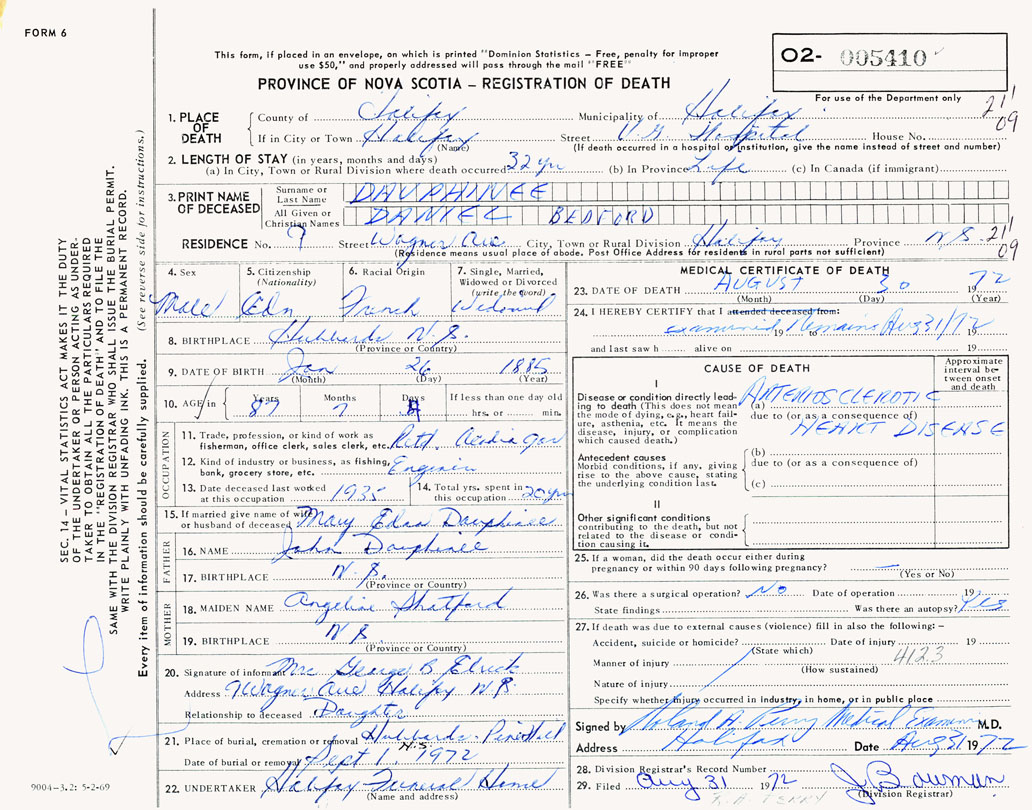 FORM 6
This form, if placed in an envelope, on which is printed "Dominion Statistics – Free, penalty for improper
use $50," and properly addressed will pass through the mail "FREE"
PROVINCE OF NOVA SCOTIA – REGISTRATION OF DEATH
02- 005410
For use of the Department only
21 09
1. PLACE OF DEATH County of Halifax Municipality of Halifax
If in City or Town Halifax (Name) Street V.G. Hospital House No.
(If death occurred in a hospital or institution, give the name instead of street and number)
2. LENGTH OF STAY (in years, months and days)
(a) In City, Town or Rural Division where death occurred 32 yrs (b) In Province Life (c) In Canada (if immigrant)
3. PRINT NAME OF DECEASED Surname or Last Name DAUPHINEE
All Given or Christian Names DANIEL BEDFORD
RESIDENCE No. 9 Street Wagner Ave City, Town or Rural Division Halifax Province N.S. 21 09
(Residence means usual place of abode. Post Office Address for residents in rural parts not sufficient)
4. Sex Male
5. Citizenship (Nationality) Cdn
6. Racial Origin French
7. Single, Married, Widowed or Divorced (write the word) Widowed
8. BIRTHPLACE Hubbards N.S. (Province or Country)
9. DATE OF BIRTH Jan (Month) 26 (Day) 1885 (Year)
10. AGE in Years 87 Months 7 Days If less than one day old hrs. or min.
OCCUPATION
11. Trade, profession, or kind of work as fisherman, office clerk, sales clerk, etc. Retd. Acadia Gas
12. Kind of industry or business, as fishing, bank, grocery store, etc. Engines
13. Date deceased last worked at this occupation 1935
14. Total yrs. spent in this occupation 20 yrs
15. If married give name of wife or husband of deceased Mary Edna Dauphinee
FATHER
16. NAME John Dauphinee
17. BIRTHPLACE N.S. (Province or Country)
MOTHER
18. MAIDEN NAME Angeline Shatford
19. BIRTHPLACE N.S. (Province or Country)
20. Signature of informant Mrs. George B.
Address 9 Wagner Ave Halifax N.S.
Relationship to deceased Daughter
21. Place of burial, cremation or removal Hubbards - Pine Hill N.S.
Date of burial or removal Sept 1, 1972
22. UNDERTAKER Halifax Funeral Home
(Name and address)
MEDICAL CERTIFICATE OF DEATH
23. DATE OF DEATH AUGUST (Month) 30 (Day) 1972 (Year)
24. I HEREBY CERTIFY that I attended deceased from:
examined 19 to remains Aug 31/72 19
and last saw h alive on 19
CAUSE OF DEATH
Approximate interval between onset and death
I
Disease or condition directly leading to death (This does not mean the mode of dying, e.g., heart failure, asthenia, etc. It means the disease, injury, or complication which caused death.)
(a) ARTERIOSCLEROTIC
due to (or as a consequence of)
HEART DISEASE
Antecedent causes
Morbid conditions, if any, giving rise to the above cause, stating the underlying condition last.
(b)
due to (or as a consequence of)
(c)
II
Other significant conditions
contributing to the death, but not related to the disease or condition causing it.
25. If a woman, did the death occur either during
pregnancy or within 90 days following pregnancy? — (Yes or No)
26. Was there a surgical operation? No Date of operation 19
State findings Was there an autopsy? Yes
27. If death was due to external causes (violence) fill in also the following: –
Accident, suicide or homicide? (State which) Date of injury 19
Manner of injury (How sustained) 412.3
Nature of injury
Specify whether injury occurred in industry, in home, or in public place
Signed by Roland A. Perry Medical Examiner M.D.
Address Halifax Date Aug 31 1972
28. Division Registrar's Record Number
29. Filed Aug 31 1972 J. Bauman (Division Registrar)
R. A. PERRY
SEC. 14 – VITAL STATISTICS ACT MAKES IT THE DUTY
OF THE UNDERTAKER OR PERSON ACTING AS UNDER-
TAKER TO OBTAIN ALL THE PARTICULARS REQUIRED
IN THE "REGISTRATION OF DEATH" AND TO FILE THE
SAME WITH THE DIVISION REGISTRAR WHO SHALL ISSUE THE BURIAL PERMIT.
WRITE PLAINLY WITH UNFADING INK. THIS IS A PERMANENT RECORD.
Every item of information should be carefully supplied. (See reverse side for instructions.)
9004-3.2: 5-2-69